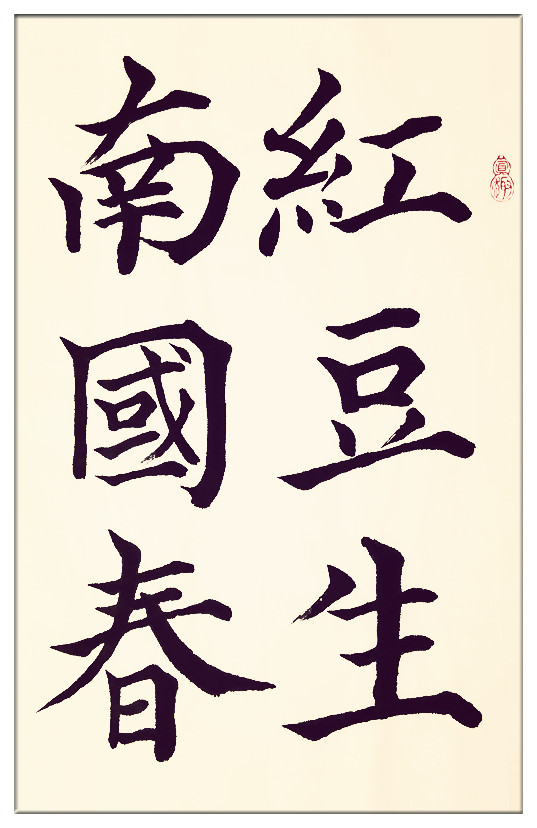 紅豆生
南國春